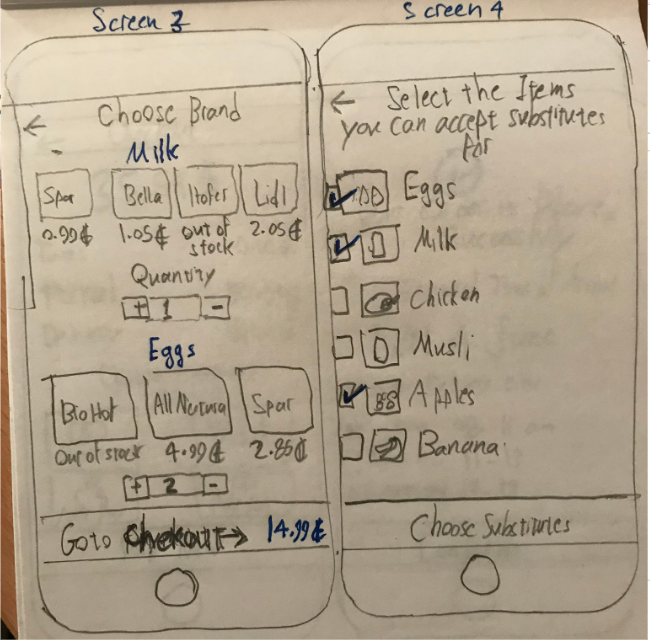 Screen 3
← Choose Brand
Milk
Spar Bella Hofer Lidl
0.99€ 1.05€ out of stock 2.05€
Quantity
+ 1 -
Eggs
BioHof All Nutura Spar
Out of stock 4.99€ 2.85€
+ 2 -
Go to Chekout → 14.99€
Screen 4
← Select the Items
you can accept substitutes
for
Eggs
Milk
Chicken
Musli
Apples
Banana
Choose Substitutes